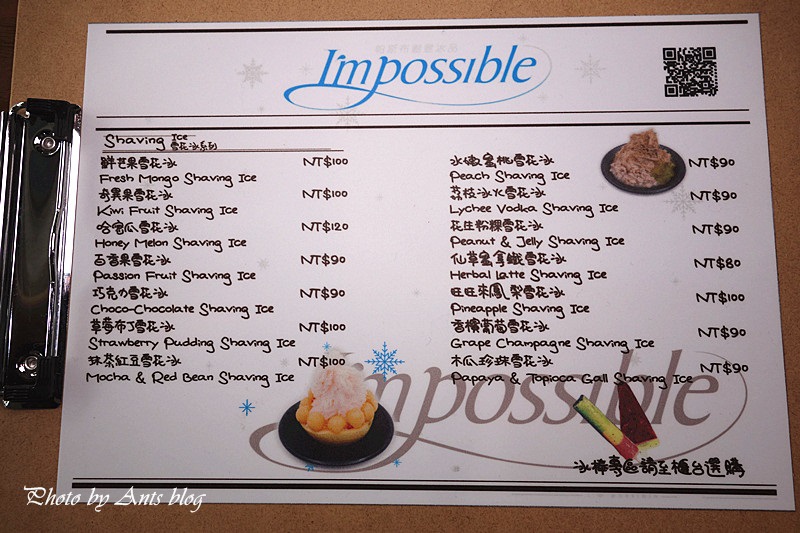 I'mpossible
Shaving Ice
雪花冰系列
鮮芒果雪花冰 NT$100
Fresh Mongo Shaving Ice
奇異果雪花冰 NT$100
Kiwi Fruit Shaving Ice
哈密瓜雪花冰 NT$120
Honey Melon Shaving Ice
百香果雪花冰 NT$90
Passion Fruit Shaving Ice
巧克力雪花冰 NT$90
Choco-Chocolate Shaving Ice
草莓布丁雪花冰 NT$100
Strawberry Pudding Shaving Ice
抹茶紅豆雪花冰 NT$100
Mocha & Red Bean Shaving Ice
水嫩蜜桃雪花冰 NT$90
Peach Shaving Ice
荔枝冰火雪花冰 NT$90
Lychee Vodka Shaving Ice
花生粉粿雪花冰 NT$90
Peanut & Jelly Shaving Ice
仙草蜜拿鐵雪花冰 NT$80
Herbal Latte Shaving Ice
旺旺來鳳梨雪花冰 NT$100
Pineapple Shaving Ice
香檳葡萄雪花冰 NT$90
Grape Champagne Shaving Ice
木瓜珍珠雪花冰 NT$90
Papaya & Topioca Gall Shaving Ice
I'mpossible
冰棒專區請至櫃台選購
Photo by Ants blog